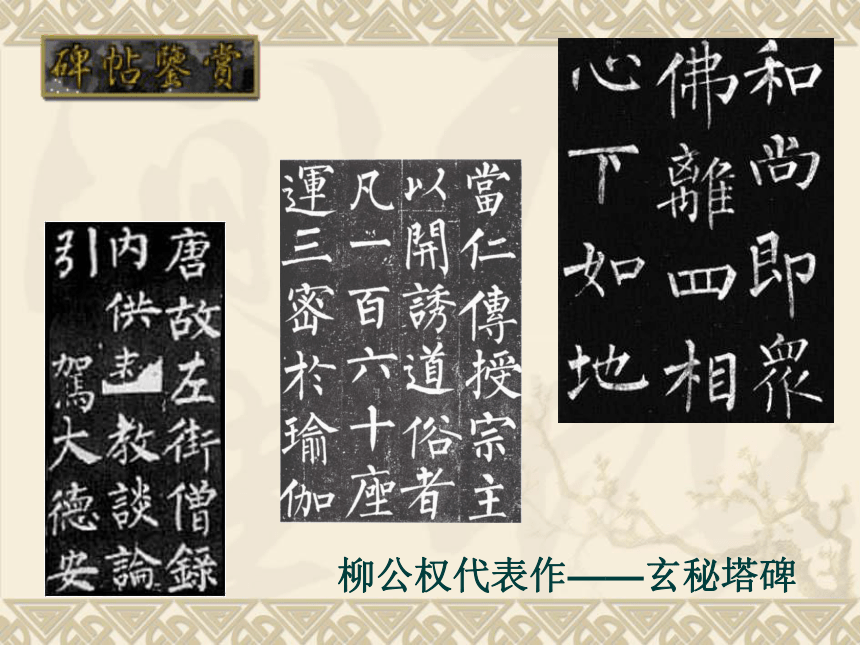 碑帖鑒賞
唐故左街僧錄
内供表教談論
引駕大德安
當仁傳授宗主
以開誘道俗者
凡一百六十座
運三密於瑜伽
和尚即眾
佛離四相
心下如地
柳公权代表作——玄秘塔碑